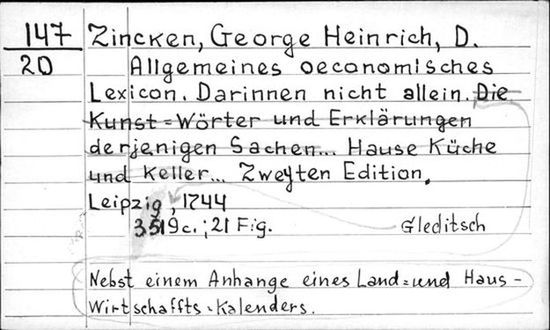 147 Zincken, George Heinrich, D.
20 Allgemeines oeconomisches
Lexicon. Darinnen nicht allein. Die
Kunst=Wörter und Erklärungen
derjenigen Sachen... Hause Küche
und Keller... Zweyten Edition.
Leipzig, 1744
3519c.; 21 Fig. Gleditsch
Nebst einem Anhange eines Land=und Haus-
Wirtschaffts-Kalenders.